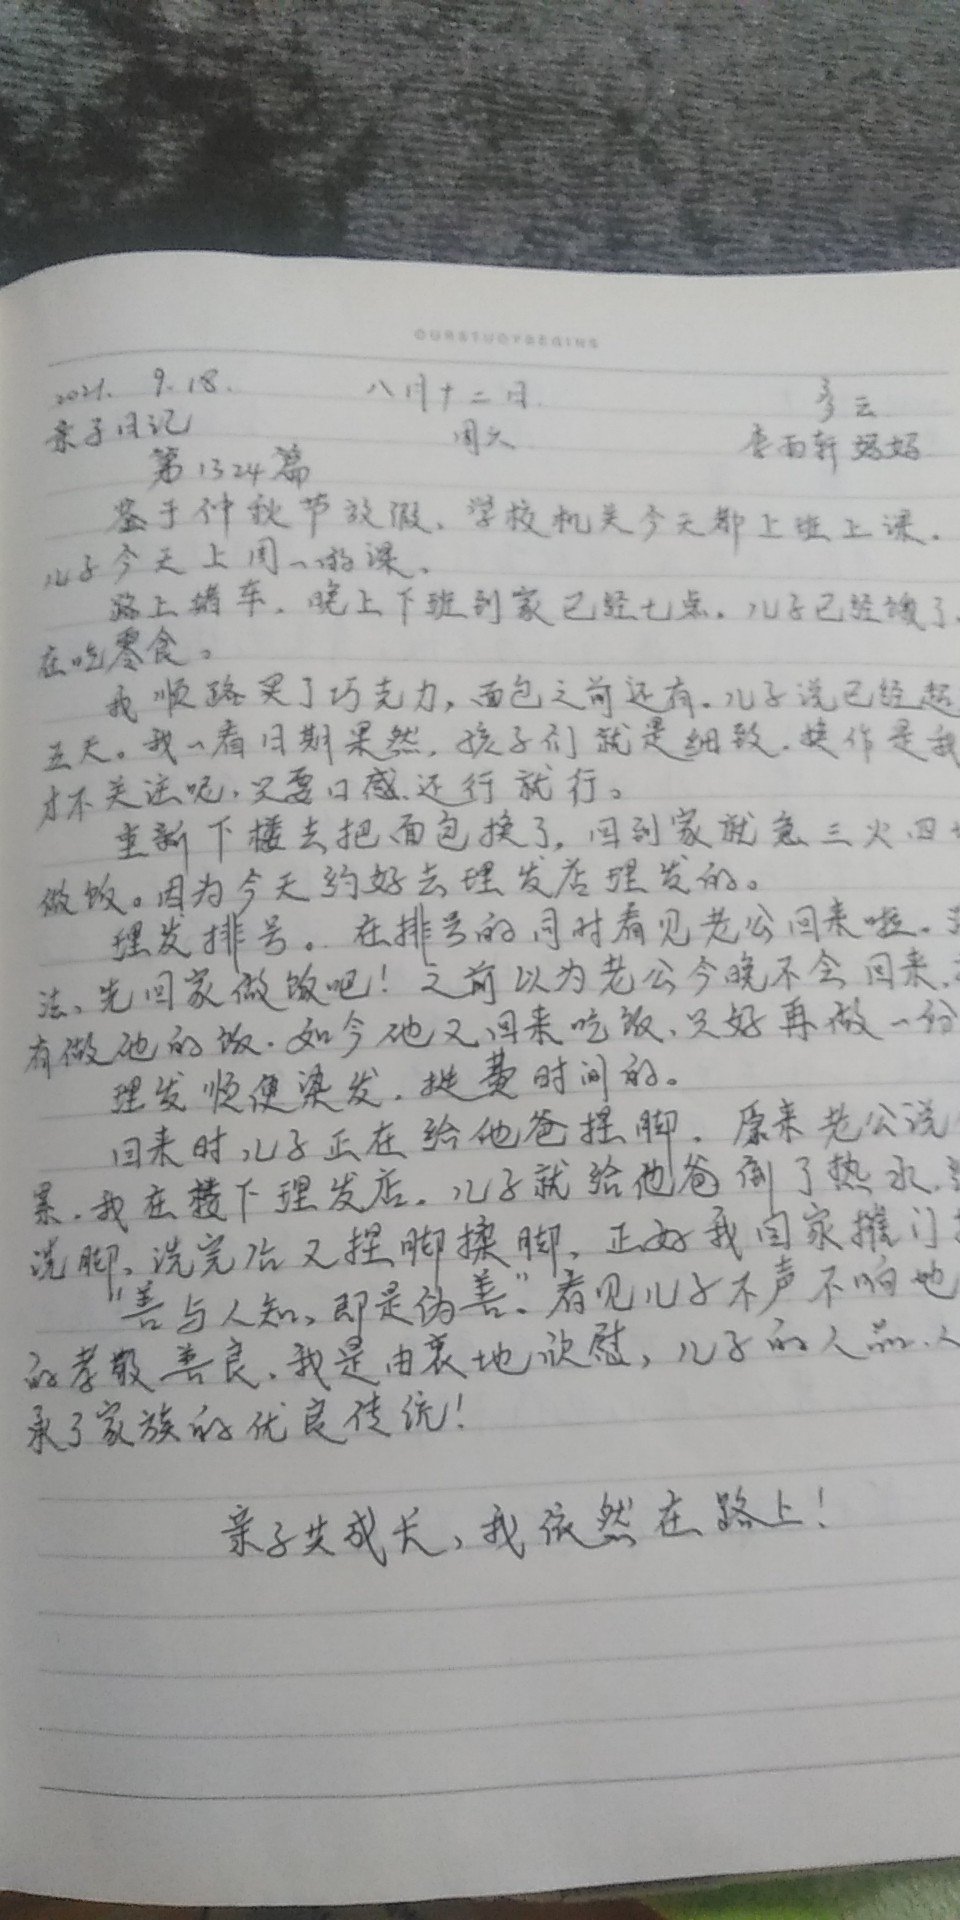 OURSTUDYBEGINS
2021. 9.18. 八月十二日. 多云
亲子日记 周六 李雨轩妈妈
第1324篇
鉴于仲秋节放假、学校机关今天都上班上课.
儿子今天上周一的课。
路上堵车. 晚上下班到家已经七点. 儿子已经饿了.
在吃零食。
我顺路买了巧克力, 面包之前还有. 儿子说已经超
五天。我一看日期果然. 孩子们就是细致. 换作是我
才不关注呢, 只要口感还行就行。
重新下楼去把面包换了, 回到家就急三火四
做饭。因为今天约好去理发店理发的。
理发排号。在排号的同时看见老公回来啦。
法、先回家做饭吧! 之前以为老公今晚不会回来.
有做他的饭. 如今他又回来吃饭、只好再做一份
理发顺便染发. 挺费时间的。
回来时儿子正在给他爸捏脚. 原来老公说
累. 我在楼下理发店. 儿子就给他爸倒了热水.
洗脚、洗完后又捏脚揉脚、正好我回家推门
"善与人知、即是伪善". 看见儿子不声不响地
的孝敬善良、我是由衷地欣慰, 儿子的人品、人
承了家族的优良传统!
亲子共成长, 我依然在路上!